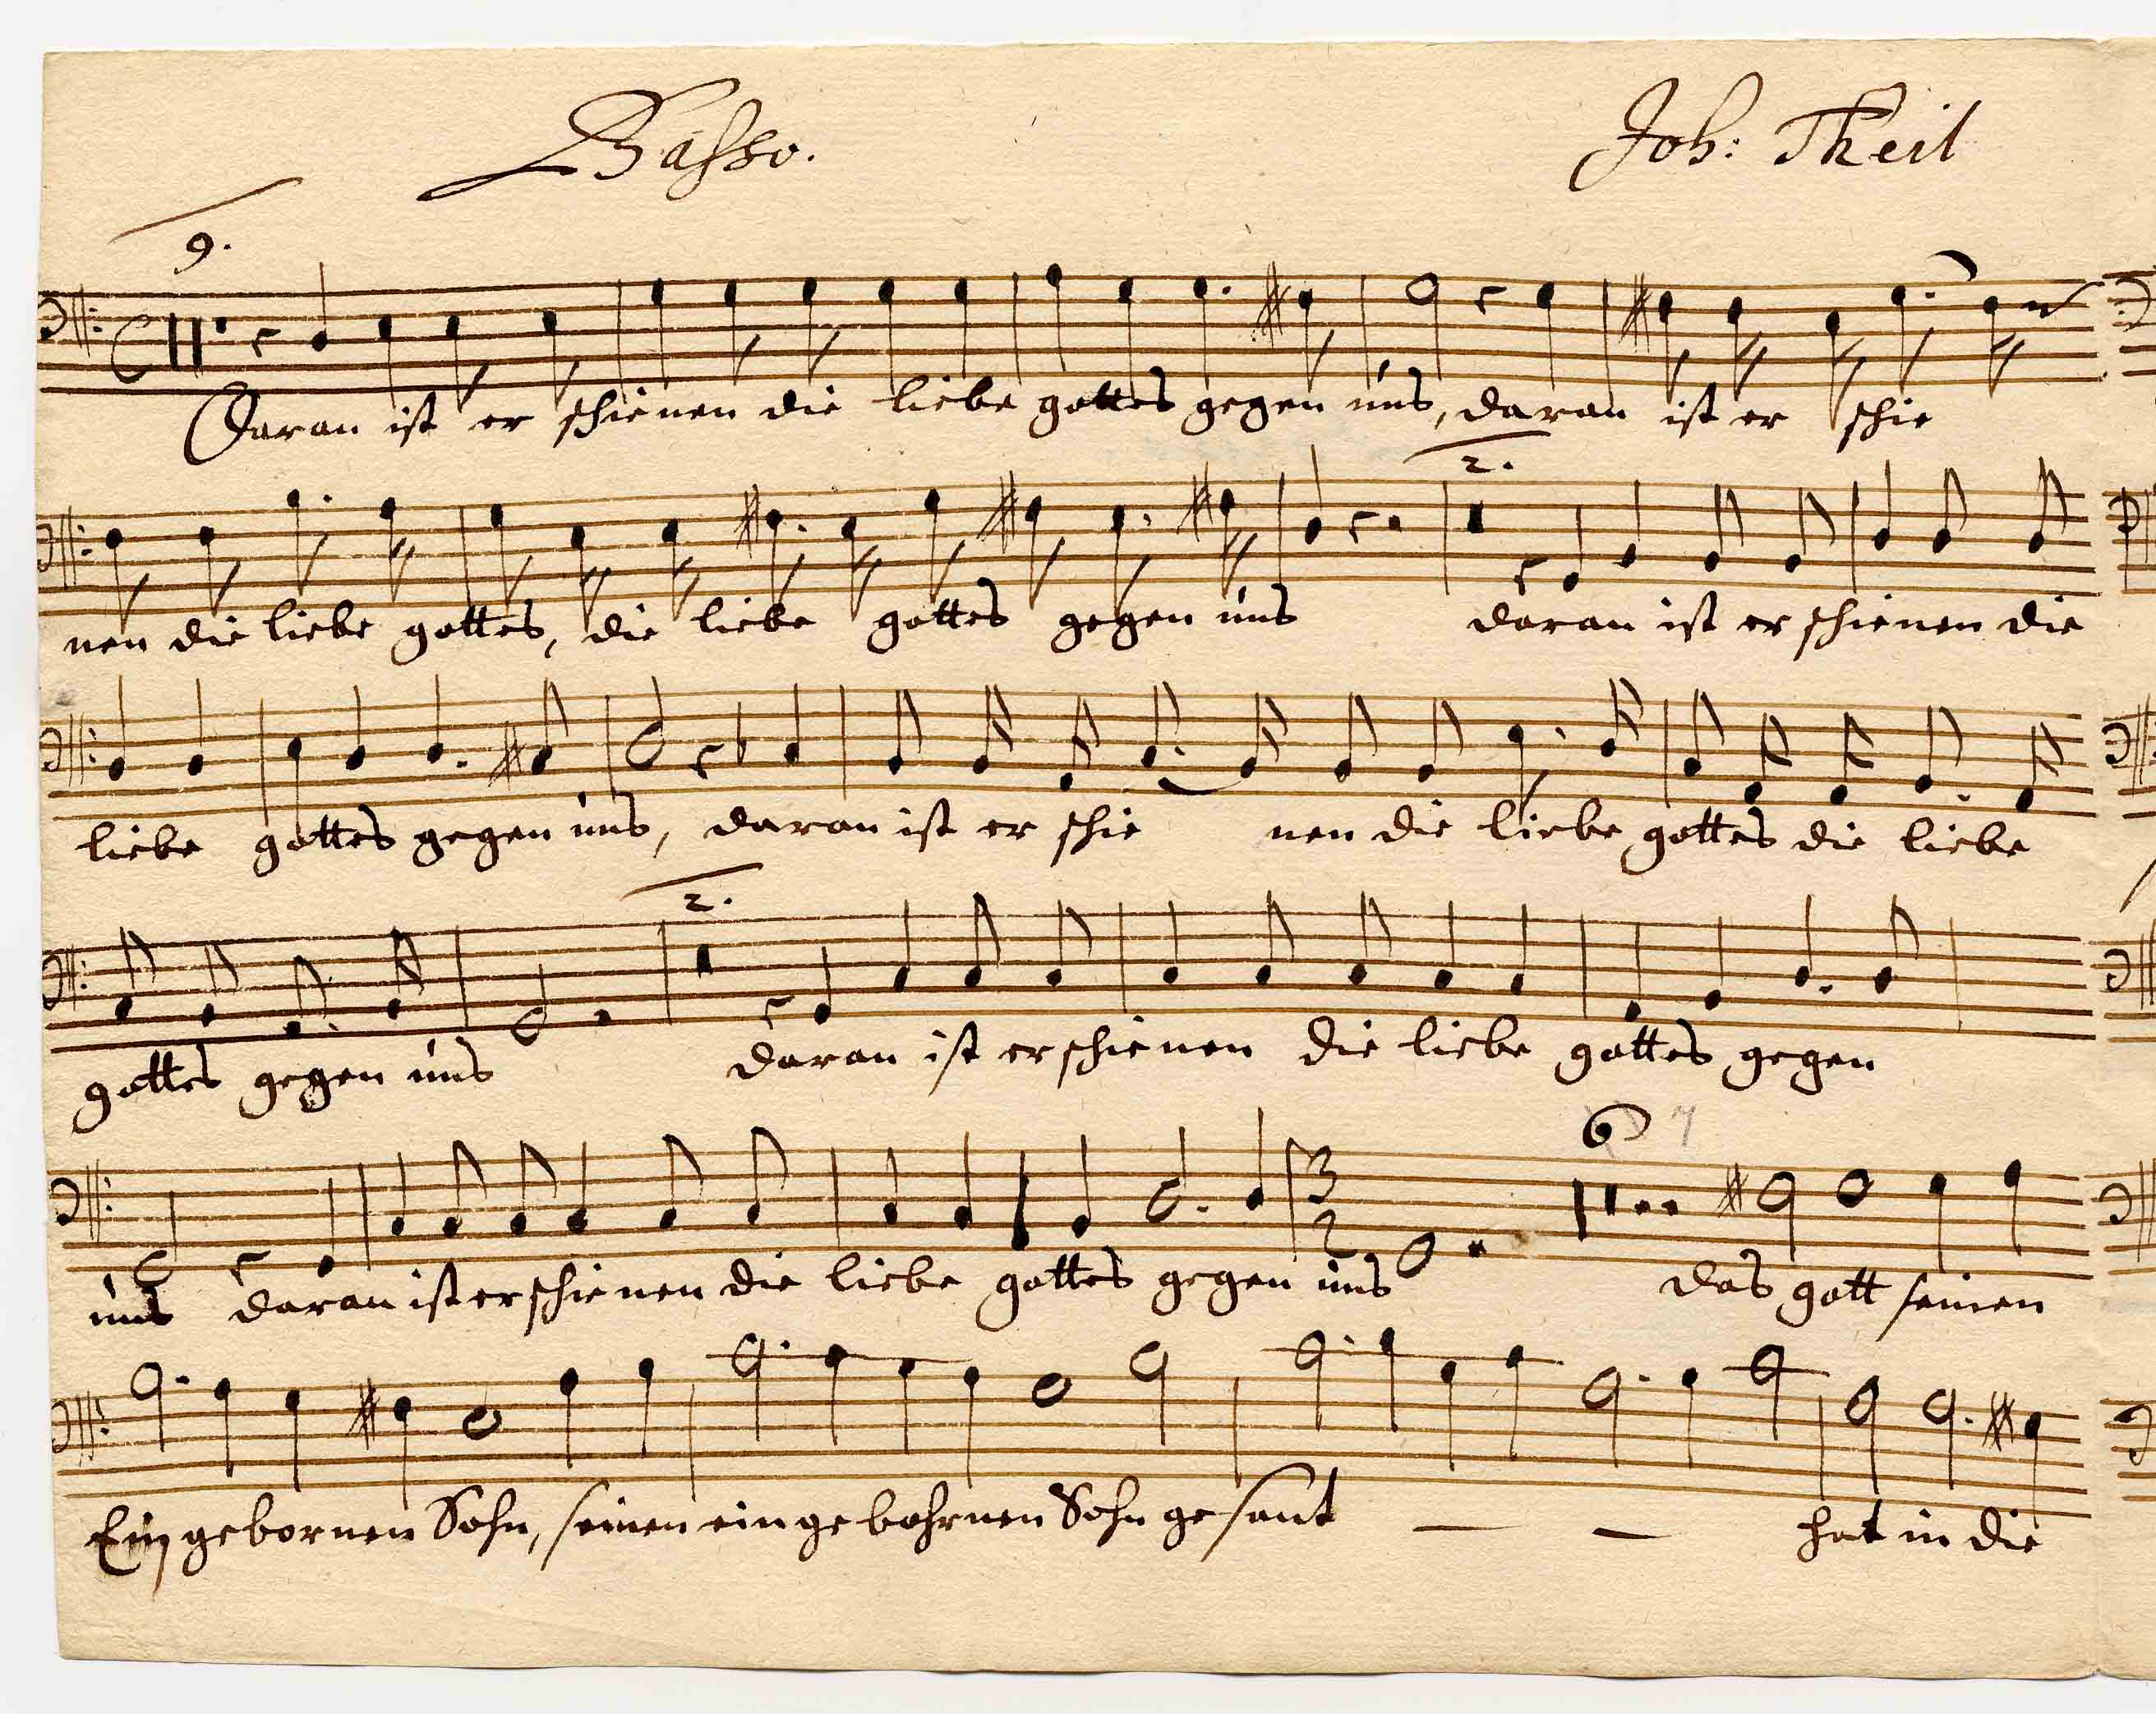 Basso. Joh: Theil
9.
C
Daran ist er schienen die liebe gottes gegen uns, daran ist er schie
2.
nen die liebe gottes, die liebe gottes gegen uns daran ist er schienen die
liebe gottes gegen uns, daran ist er schie nen die liebe gottes die liebe
2.
gottes gegen uns daran ist er schienen die liebe gottes gegen
6 7
3
2
uns daran ist er schienen die liebe gottes gegen uns das gott seinen
Ein gebornen Sohn, seinen ein ge bohrnen Sohn ge sant — — hat in die